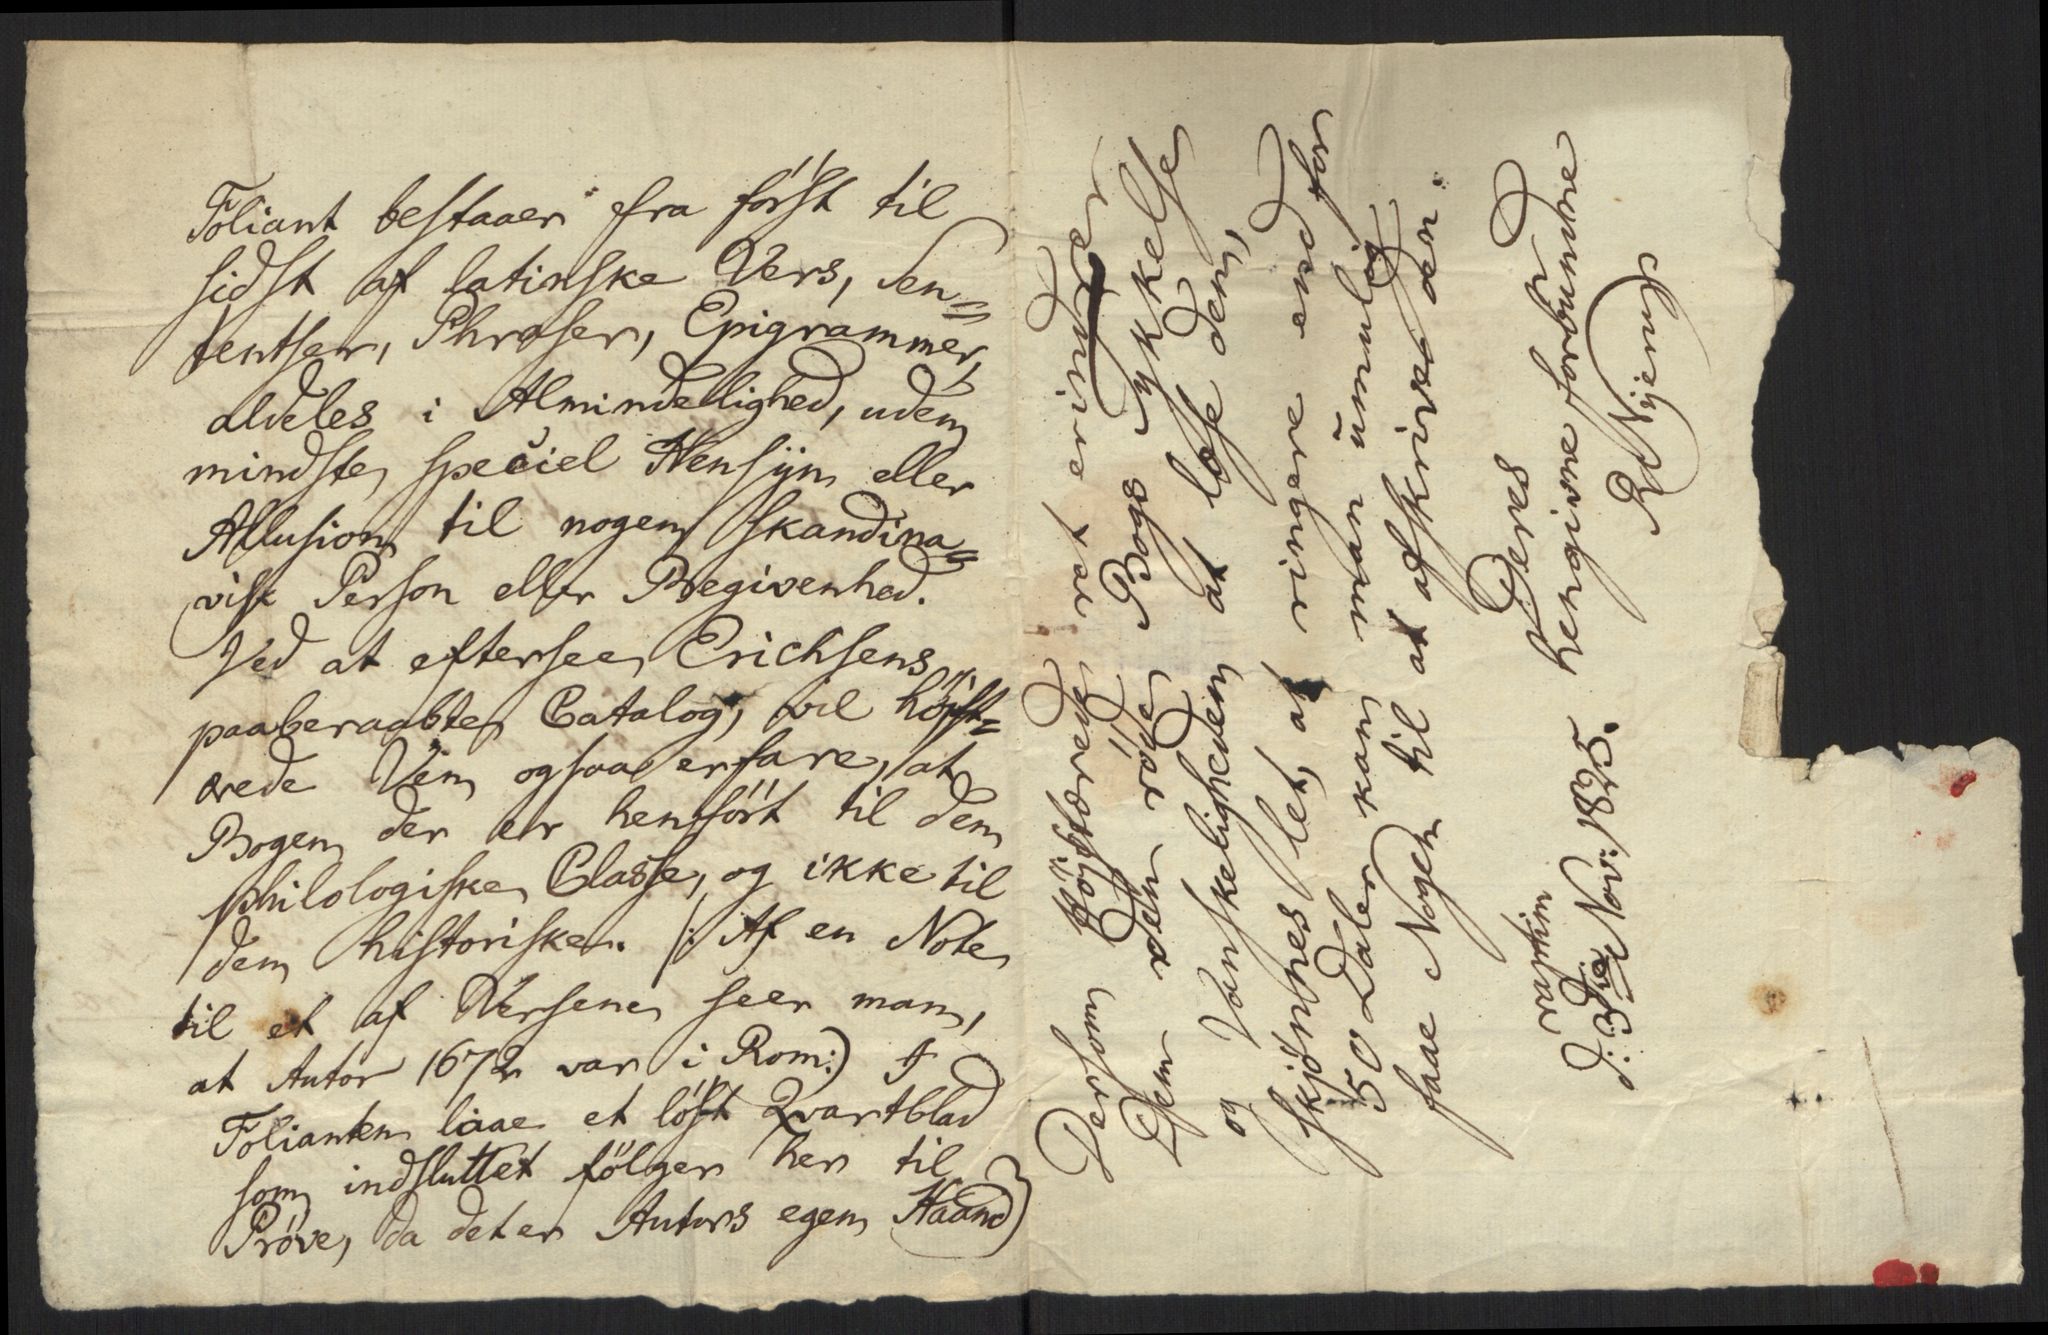 Foliant bestaaer fra först til
sidst af latinske Vers, Sen=
tentser, Phraser, Epigrammer,
aldeles i Almindelighed, uden
mindste speciel Hensÿn eller
Allusion til nogen skandina=
visk Person eller Begivenhed.
Ved at eftersee Erichsens
paaberaabte Catalog, vil höjst=
ærede Ven ogsaa erfare, at
Bogen der er henfört til den
philologiske Classe, og ikke til
den historiske. /: Af en Note
til et af Versene seer man,
at Autor 1672 var i Rom:) I
Folianten laae et löst Qvartblad
som indsluttet fölger her til
Pröve, da det er Autors egen Haand
Dersom Höjstærede ret erindrer
Dem den röde Bogs Tykkelse
og Vanskeligheden at læse den,
skjönnes let, at ringere end for
50 Daler kan man umulig
faae Nogen til at afskrive den.
Deres
hengivne forbundne
R Nyerup
raptim
d: 3die Nov: 1825.